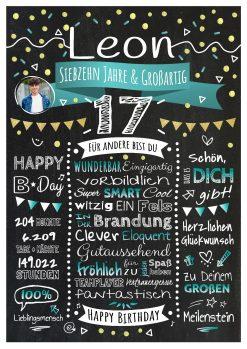 Leon
SIEBZEHN JAHRE & GROßARTIG
17
FÜR ANDERE BIST DU
HAPPY
B-DAY
204 MONATE
6.209
TAGE + NÄCHTE
149.022
STUNDEN
100%
Lieblingsmensch
WUNDERBAR Einzigartig
vorbildlich
Super SMART Cool
witzig EIN Fels
in der Brandung
Clever Eloquent
Gutaussehend
fröhlich zu jedem Spaß haben
TEAMPLAYER Vertrauensperson
fantastisch
HAPPY BIRTHDAY
Schön,
dass es
DICH
gibt!
Herzlichen
Glückwunsch
zu Deinem
GROßEN
Meilenstein